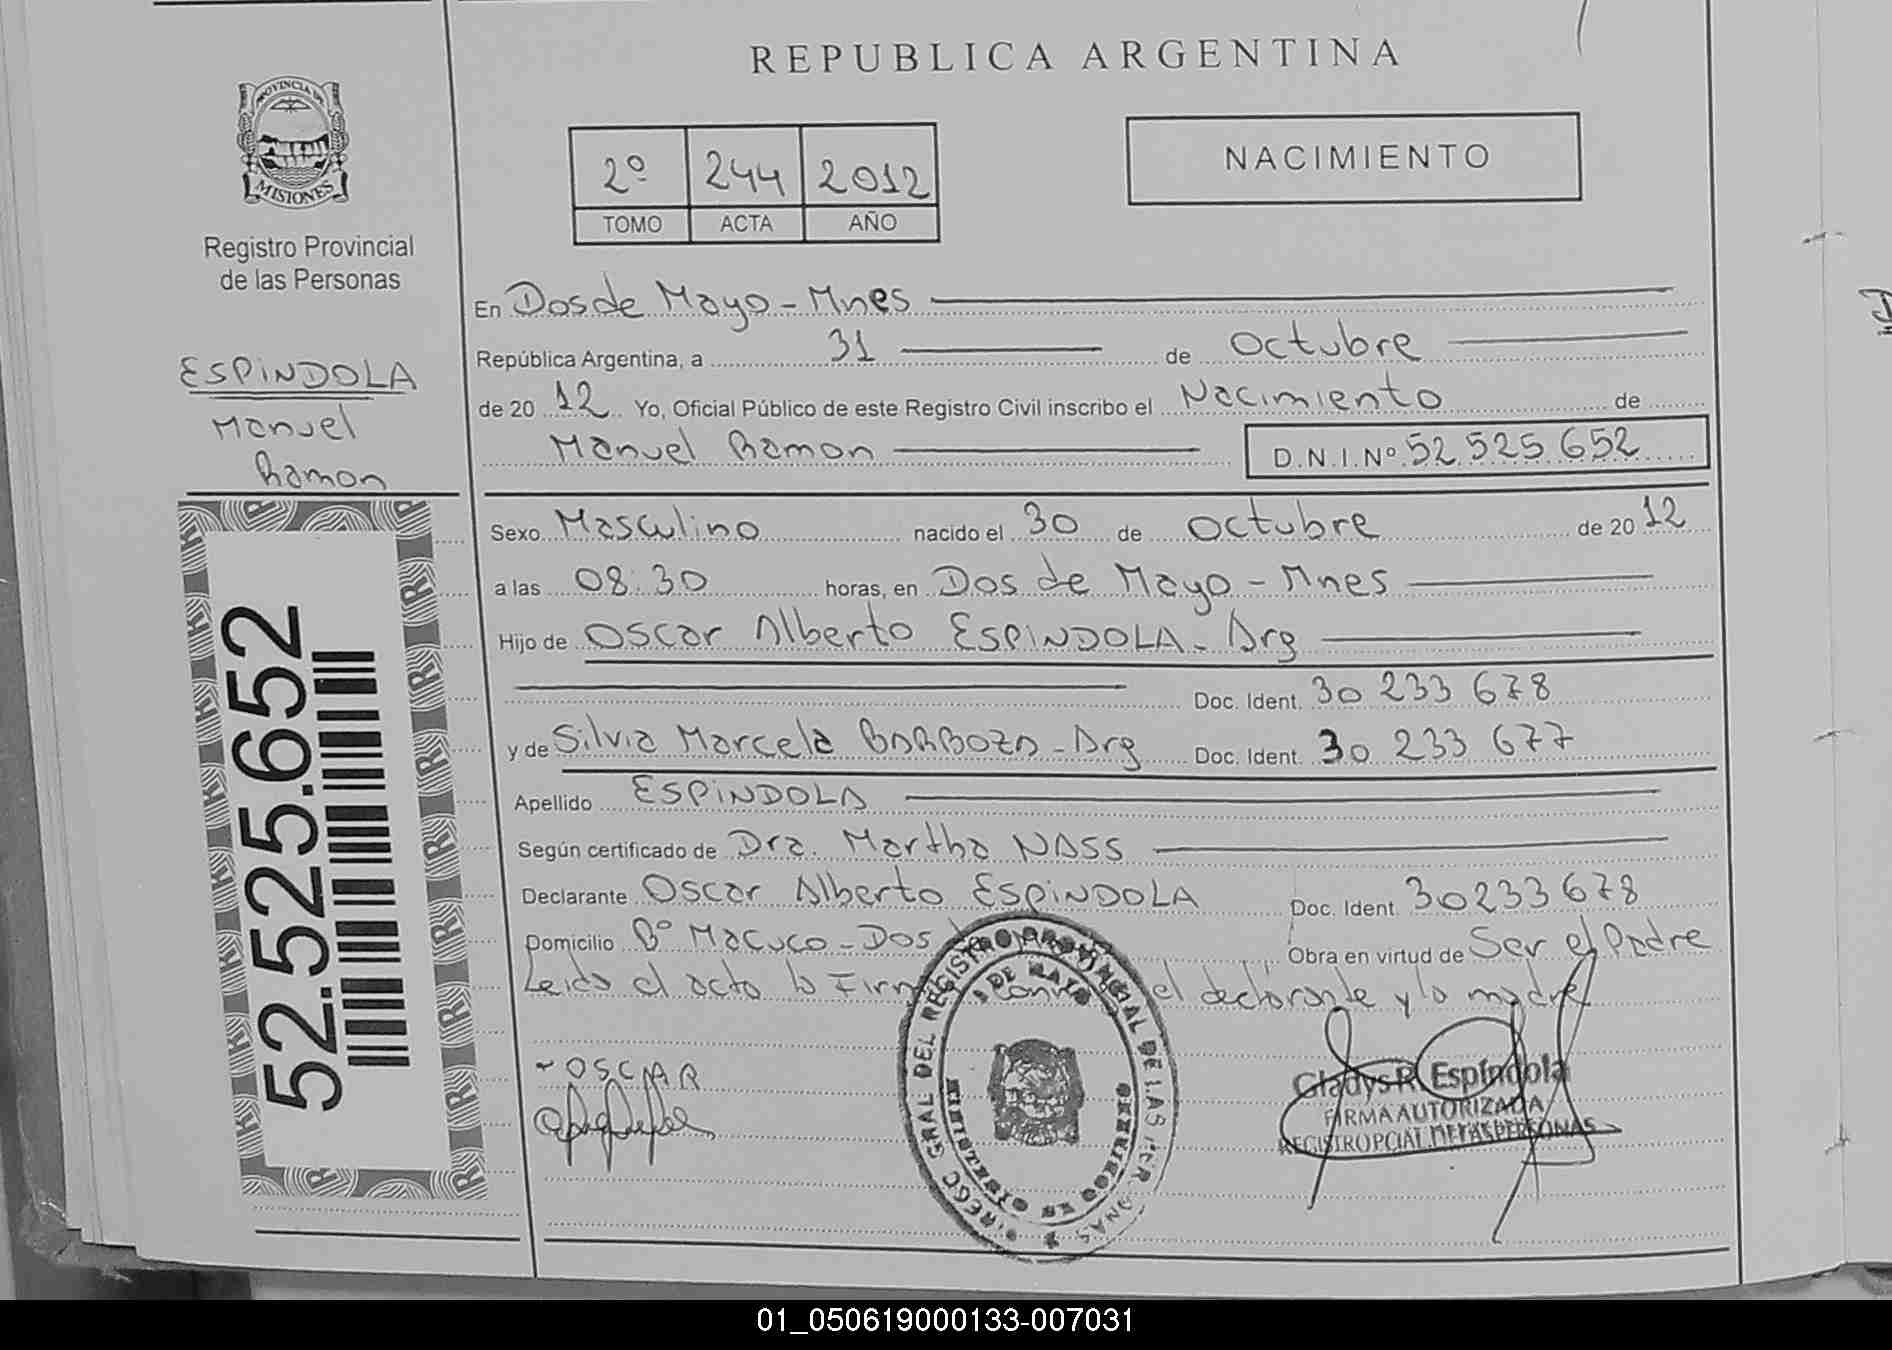 REPUBLICA ARGENTINA
PROVINCIA DE
MISIONES
Registro Provincial
de las Personas
2º 244 2012
TOMO ACTA AÑO
NACIMIENTO
En Dos de Mayo - Mnes
República Argentina, a 31 de Octubre
de 20 12 Yo, Oficial Público de este Registro Civil inscribo el Nacimiento de
Manuel Ramon D.N.I.Nº 52 525 652
ESPINDOLA
Manuel
Ramon
52.525.652
Sexo Masculino nacido el 30 de Octubre de 20 12
a las 08:30 horas, en Dos de Mayo - Mnes
Hijo de Oscar Alberto ESPINDOLA - Arg
Doc. Ident. 30 233 678
y de Silvia Marcela BARBOZA - Arg Doc. Ident. 30 233 677
Apellido ESPINDOLA
Según certificado de Dra. Martha NASS
Declarante Oscar Alberto ESPINDOLA Doc. Ident 30233678
Domicilio Bº Macuco - Dos Obra en virtud de Ser el Padre
Leida el acta la Firm el declarante y la madre
OSCAR
DE MAYO
Gladys R. Espíndola
FIRMA AUTORIZADA
REGISTRO PCIAL DE LAS PERSONAS
01_050619000133-007031